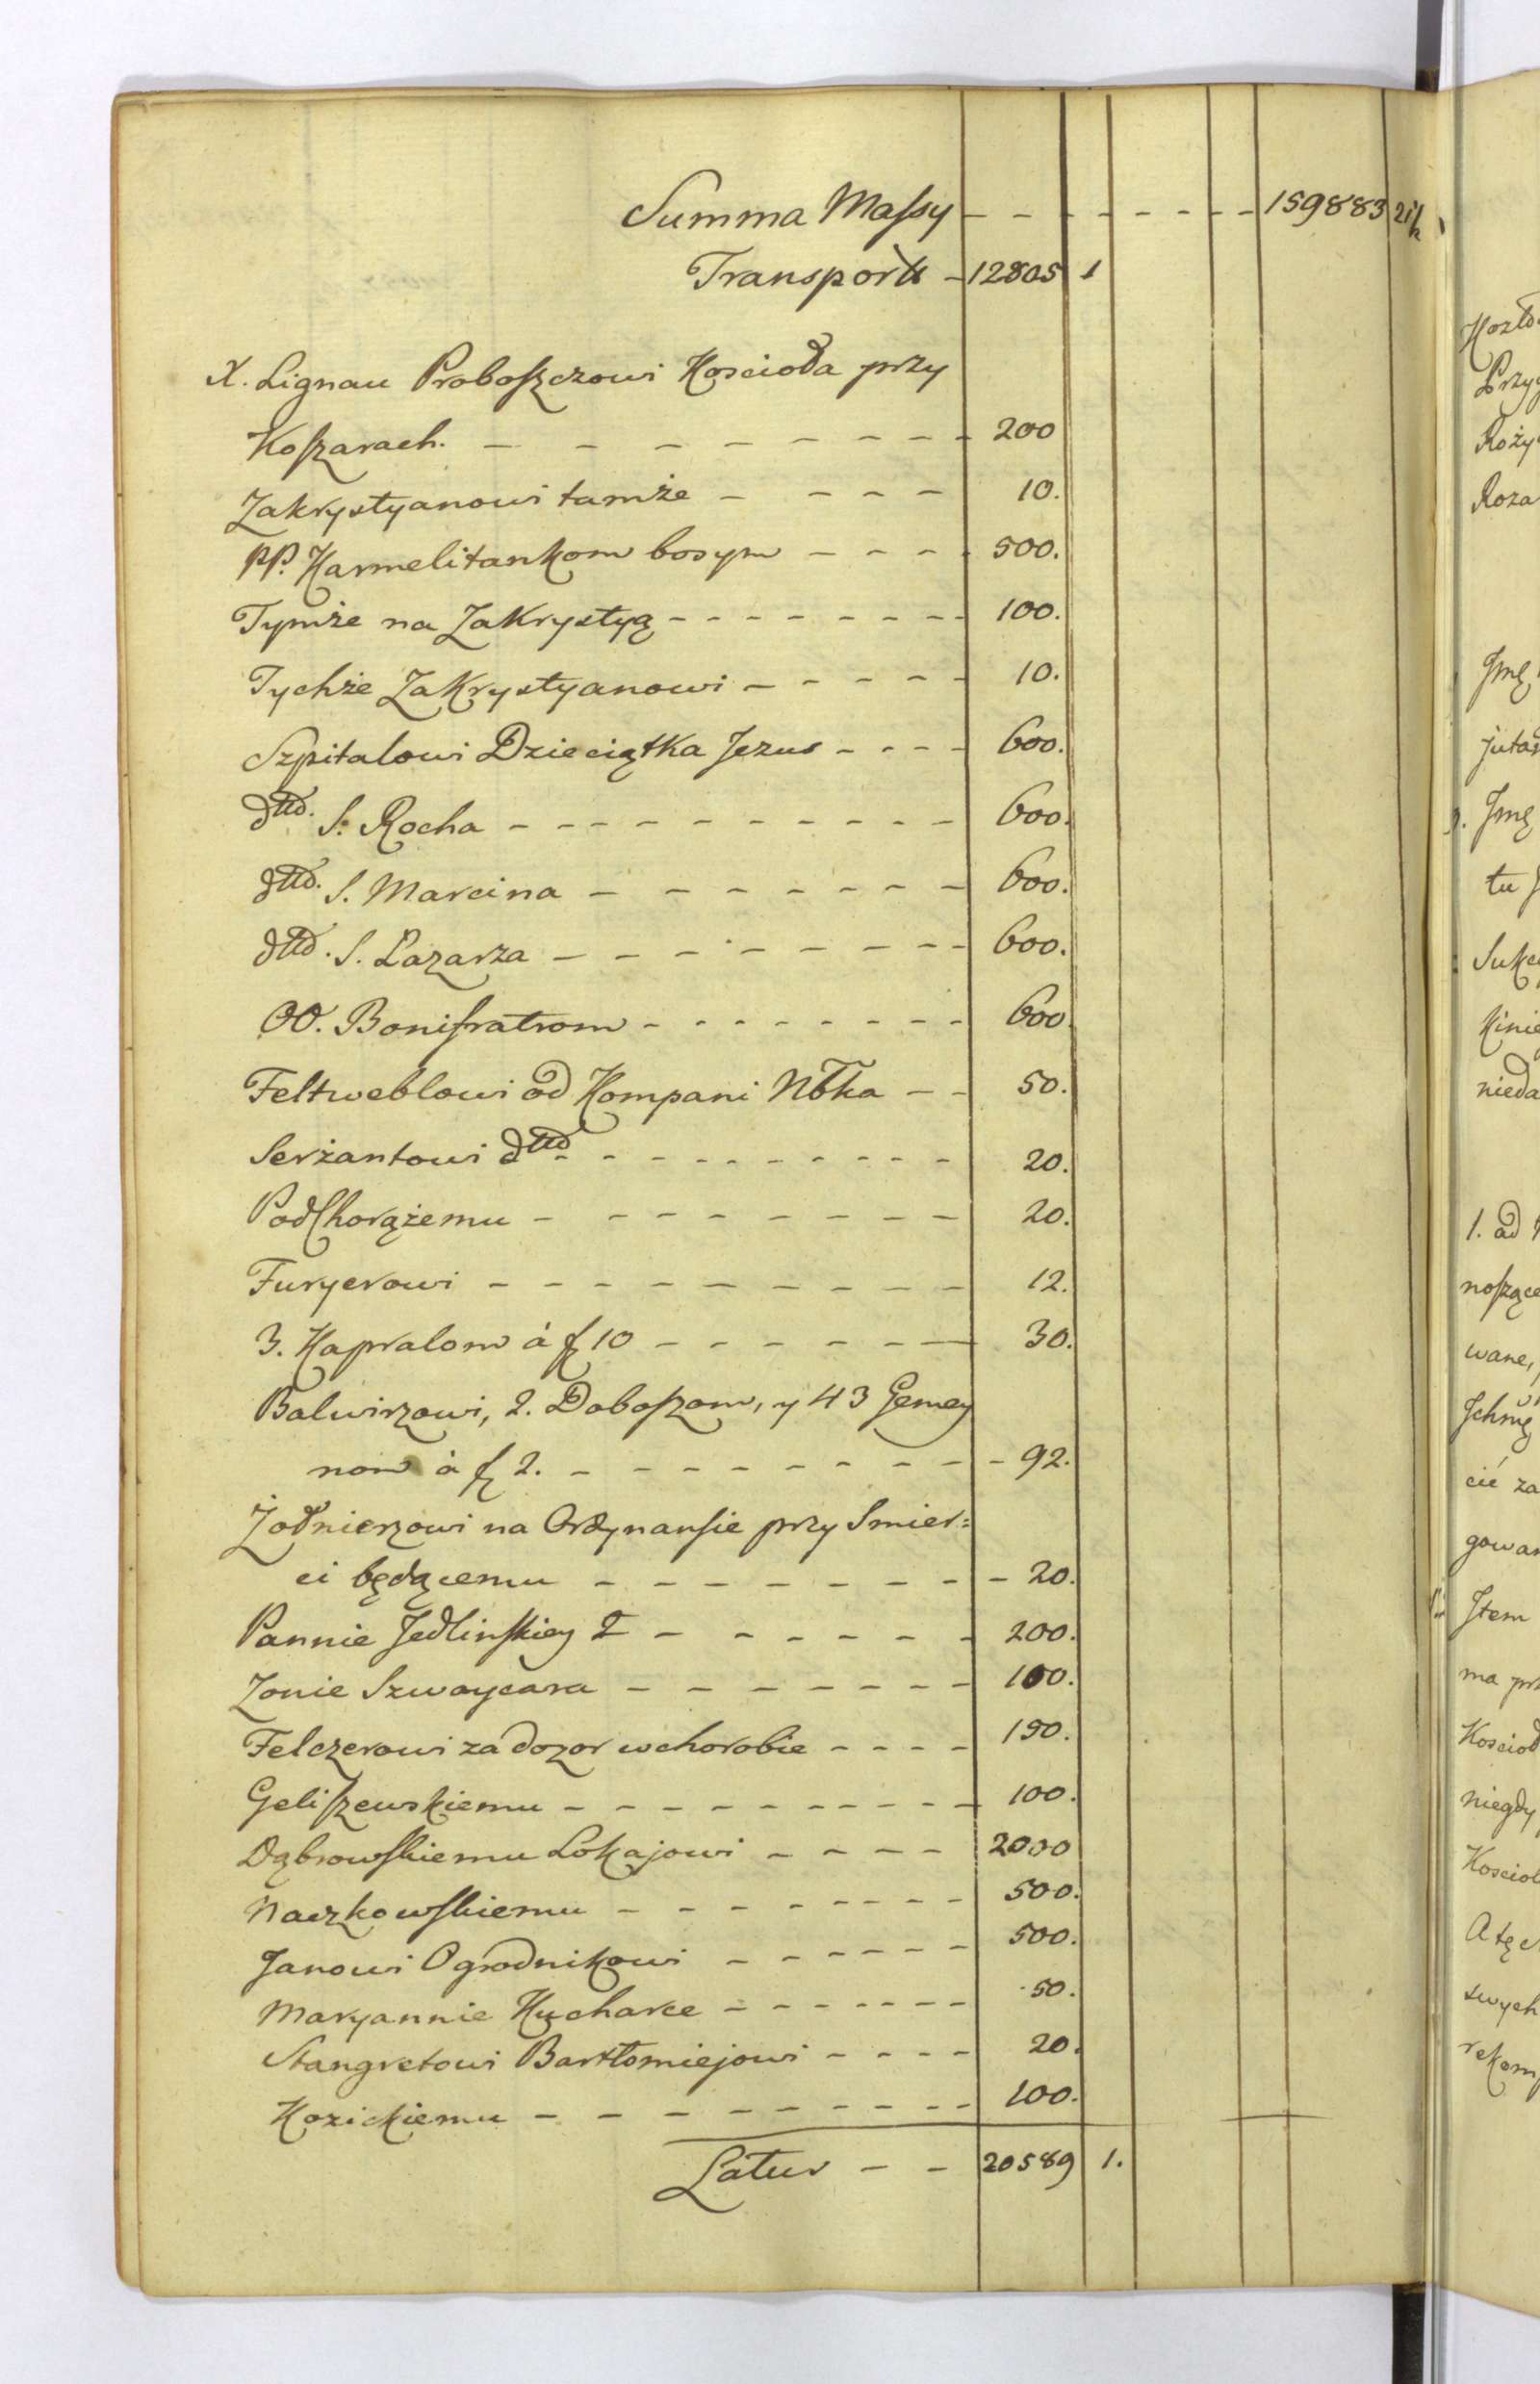 Summa Massy - - - - - - - 159883 21½
Transport - 12805 1
X. Lignau Proboszczowi Koscioła przy
Koszarach. - - - - - - - - 200
Zakrystyanowi tamże - - - - 10.
PP. Karmelitankom bosym - - - - 500.
Tymże na Zakrystyą - - - - - - - - 100.
Tychże Zakrystyanowi - - - - - 10.
Szpitalowi Dzieciątka Jezus - - - - 600.
dtto. S. Rocha - - - - - - - - - - - 600.
dtto. S. Marcina - - - - - - - 600.
dtto. S. Łazarza - - - - - - - - 600.
OO. Bonifratrom - - - - - - - - 600
Feltweblowi od Kompani Nbka - - 50.
Serżantowi dtto - - - - - - - - - 20.
PodChorążemu - - - - - - - - - 20.
Furyerowi - - - - - - - - - 12.
3. Kapralom à f 10 - - - - - - - 30.
Balwirzowi, 2. Doboszom, y 43 Gemey
nom à f 2. - - - - - - - - - 92.
Żołnierzowi na Ordynansie przy Smier=
ci będącemu - - - - - - - - - 20.
Pannie Jedlinskiey - - - - - - 200.
Zonie Szwaycara - - - - - - - 100.
Felczerowi za dozor w chorobie - - - - 150.
Geliszewskiemu - - - - - - - - - - 100.
Dąbrowskiemu Lokajowi - - - - 2000
Naczkowskiemu - - - - - - - - 500.
Janowi Ogrodnikowi - - - - - - 500.
Maryannie Kucharce - - - - - - - 50.
Stangretowi Bartłomiejowi - - - - 20.
Kozickiemu - - - - - - - - - - 100.
Latus - - 20589 1.
Przy
Roży
Roza
Jmę
Jmę
tu
kinie
nieda
1. ad
noszące
wane,
cić za
gowan
Item
ma prz
Kościoł
niegdy
Koscioł
swych
rekom